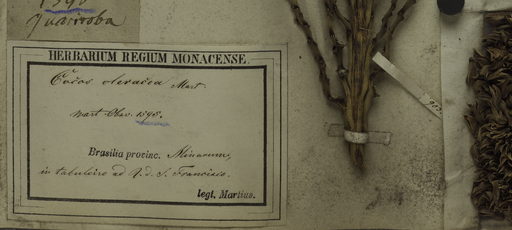 Guariroba
HERBARIUM REGIUM MONACENSE.
Cocos oleracea Mart.
Mart. Obs. 1590.
Brasilia provinc. Minarum,
in tabuleiro ad R. d. S. Francisco.
legt. Martius.